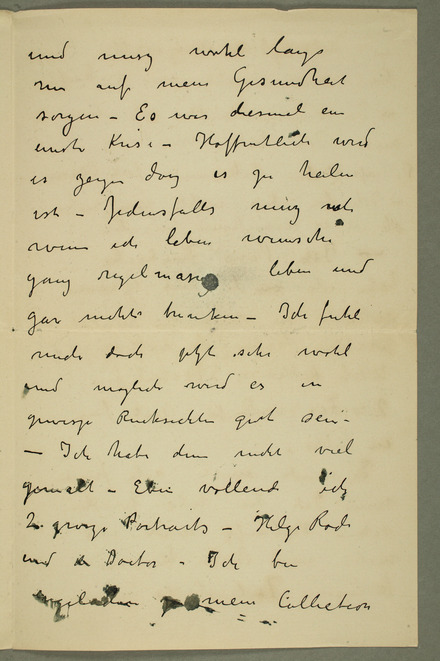 und musz wohl lange
nur auf mein Gesundheit
sorgen – Es war diesmal ein
ernste Krise – Hoffentlich wird
es zeigen dasz es zu heilen
ist – Jedensfalls musz
wenn ich leben wunsche
ganz regelmasig leben und
gar nichts trinken – Ich fuhle
mich doch jetzt sehr wohl
und moglich wird es in
gewisze Rucksichten gut sein –
– Ich habe denn nicht viel
gemalt – Eben vollende ich
2 grosze Portraits – Helge Rode
und Doctor – Ich bin
mein Collection